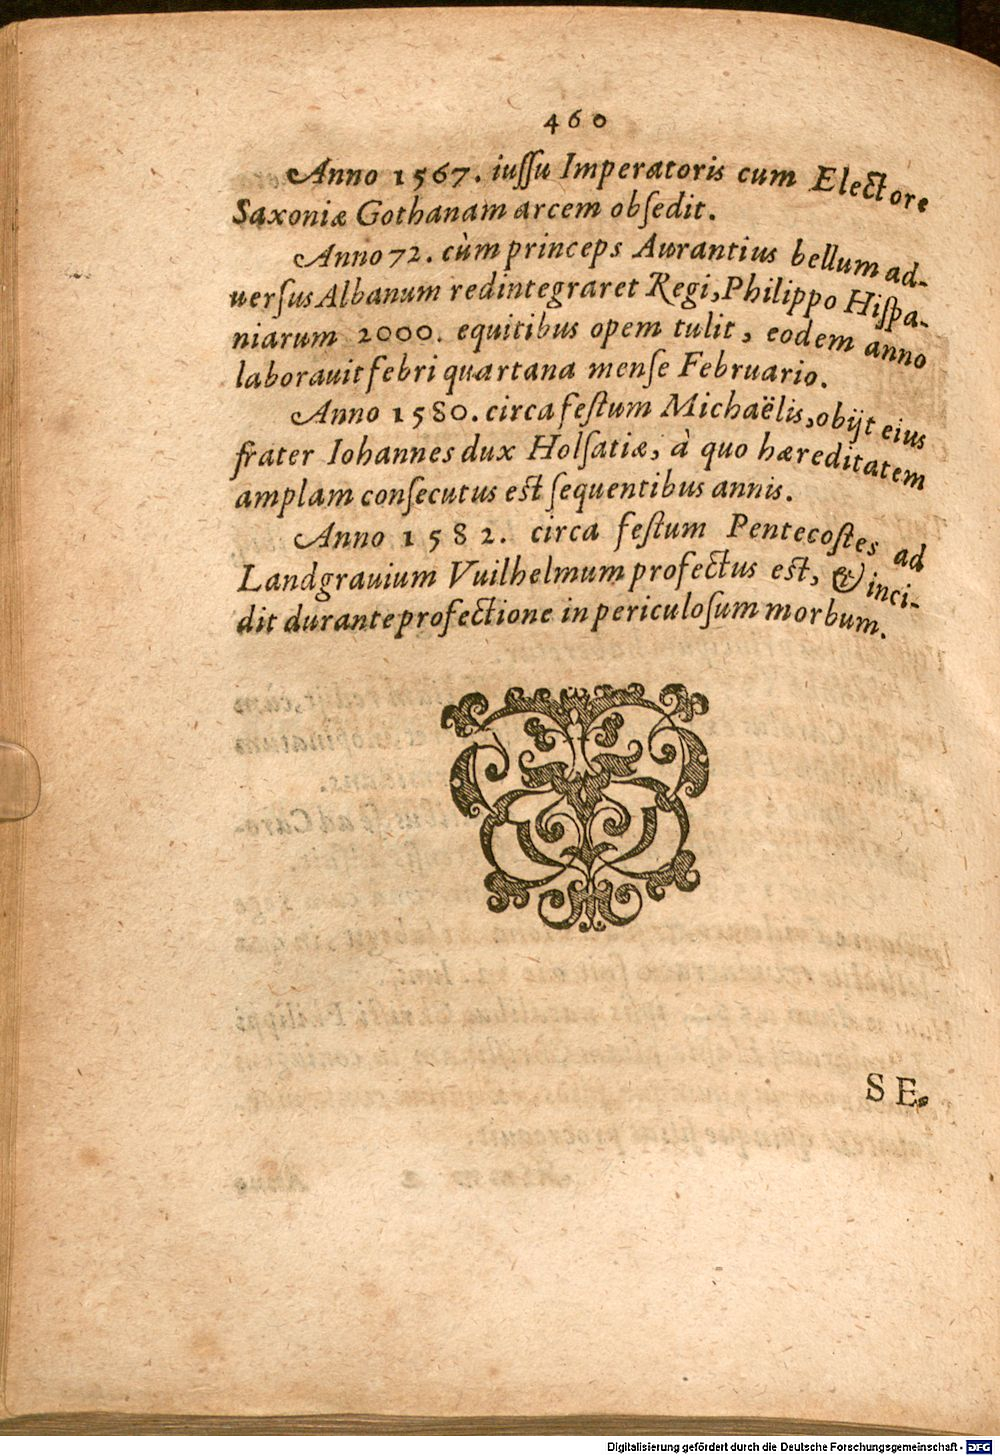 460
Anno 1567. iuſſu Imperatoris cum Electore
Saxoniæ Gothanam arcem obſedit.
Anno 72. cùm princeps Aurantius bellum ad-
uerſus Albanum redintegraret Regi, Philippo Hiſpa-
niarum 2000. equitibus opem tulit, eodem anno
laborauit febri quartana menſe Februario.
Anno 1580. circa feſtum Michaëlis, obijt eius
frater Iohannes dux Holſatiæ, à quo hæreditatem
amplam conſecutus est ſequentibus annis.
Anno 1582. circa feſtum Pentecoſtes ad
Landgrauium Vuilhelmum profectus est, & inci-
dit durante profectione in periculoſum morbum.
SE-
Digitalisierung gefördert durch die Deutsche Forschungsgemeinschaft - DFG